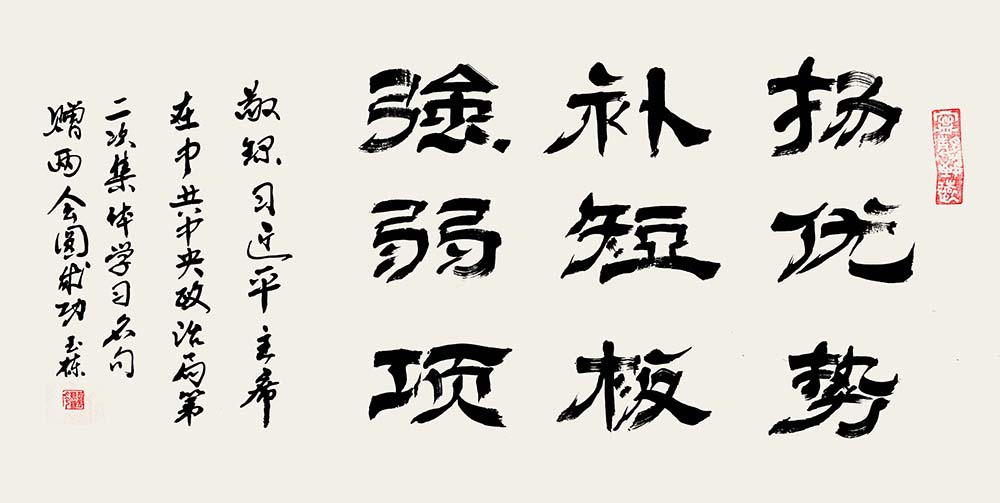 扬优势
补短板
強弱项
敬录习近平主席
在中共中央政治局第
二次集体学习名句
赠两会圆成功 玉栋